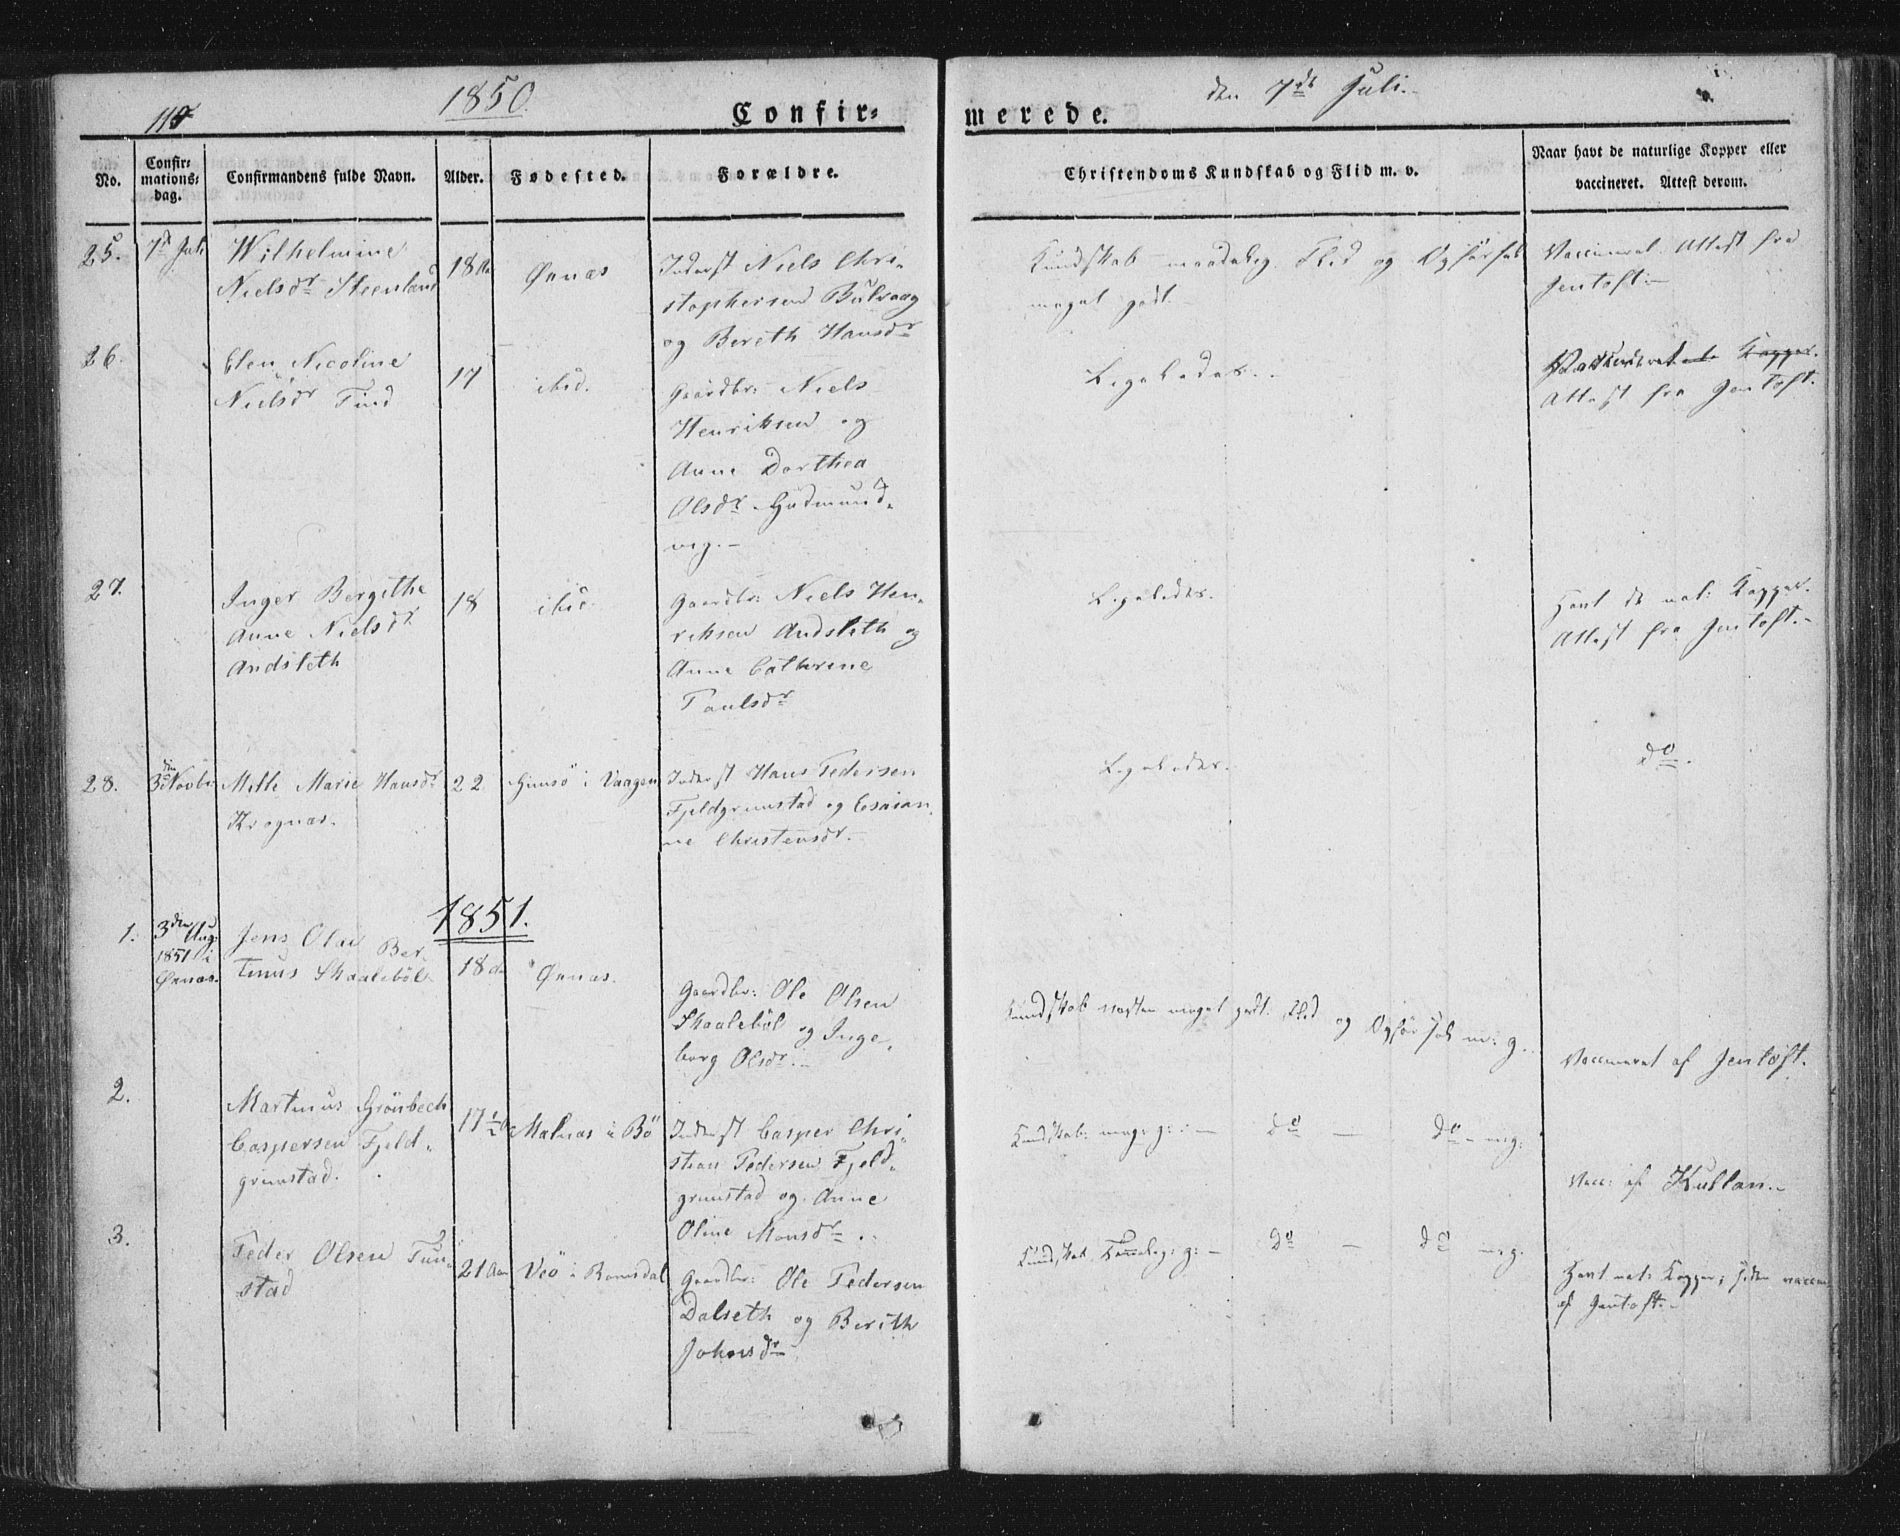 1850
den 7de Juli
Confir=
merede.
No.
Confir=
mations=
dag.
Confirmandens fulde Navn.
Alder.
Fødested.
Forældre.
Christendoms Kundskab og Flid m. v.
Naar havt de naturlige Kopper eller
vaccineret. Attest derom.
25. 7de Juli Wilhelmine
Nielsdr Steenland
18 Øxnæs
Inderst Niels Chri-
stophersen Bulvaag
og Bereth Hansdr
Kundskab maadelig. Flid og Opførsel
meget godt
Vaccineret. Attest fra
Jentoft.-
26. Elen Nicoline
Nielsdr Tind
17 ibid.
Gaardbr: Niels
Henriksen og
Anne Dorthea
Olsdr Gudmund-
veg.-
Ligeledes.
Vaccineret Kopper.
Attest fra Jentoft.
27. Inger Bergithe
Anne Nielsdr
Andsleth
18 ibid
Gaardbr: Niels Hen-
riksen Andsleth og
Anne Cathrine
Paulsdr
Ligeledes.
Havt de nat: Kopper.
Attest fra Jentoft.-
28. den 3de Novbr Mette Marie Hansdr
Krognæs.
22 Gimsö i Vaagen
Inderst Hans Pedersen
Fjeldgrunstad og Esaian-
ne Christensdr.-
Ligeledes.
do.
1851.
1. 3den Aug:
1851 i
Øxnæs.
Jens Olai Ber-
tinus Skaaleböl
18 Øxnæs.
Gaardbr: Ole Olsen
Skaaleböl og Inge-
borg Olsdr.-
Kundskab næsten meget godt. Flid og Opførsel m: g.
Vaccineret af Jentoft.
2. Martinus Grönbech
Caspersen Fjeld-
grunstad.
17½ Malnæs i Bö
Inderst Casper Chri-
stian Pedersen Fjeld-
grunstad og Anne
Oline Monsdr.
Kundskab: meg: g: - do - do - mg:
Vacc: af Kullan.-
3. Peder Olsen Tun-
stad
21 Aar Veö i Romsdal
Gaardbr: Ole Pedersen
Dalseth og Berith
Johnsdr
Kundskab g: - do - do mg.
Havt nat: Kopper; siden vaccin
af Jentoft.-